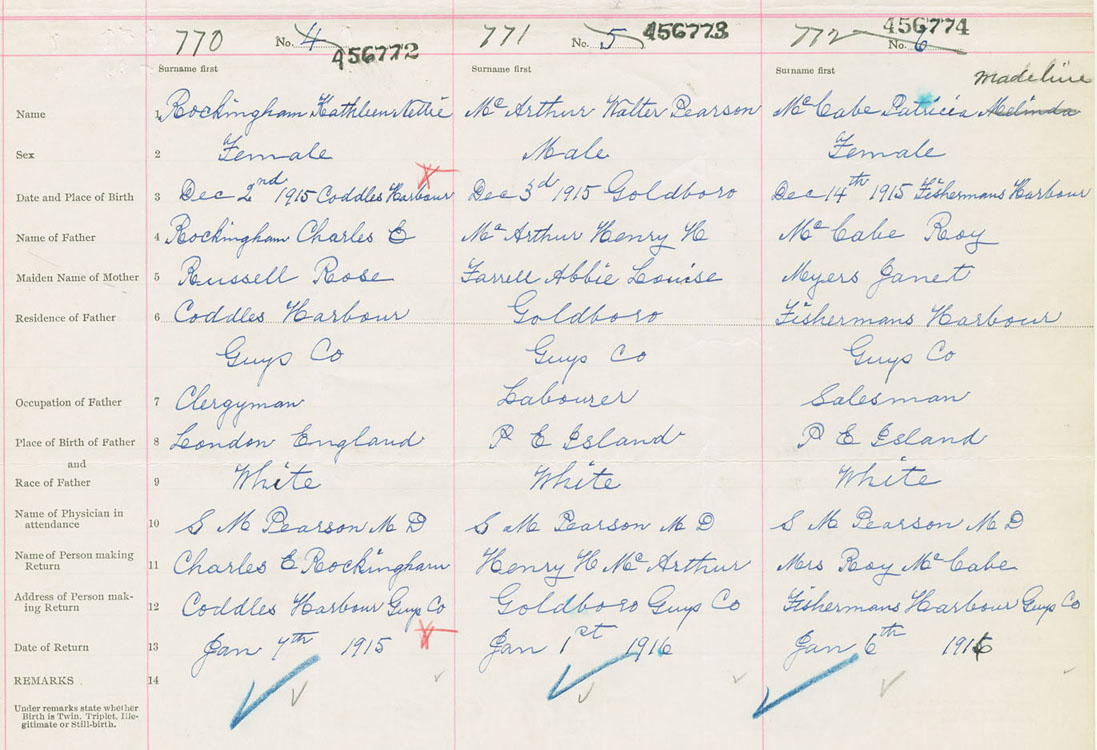 770 No. 4 456772 771 No. 5 456773 772 No. 6 456774
Surname first Surname first Surname first Madeline
Name 1 Rockingham Kathleen Nettie Mc Arthur Walter Pearson Mc Cabe Patricia Melinda
Sex 2 Female Male Female
Date and Place of Birth 3 Dec 2nd 1915 Coddles Harbour Dec 3d 1915 Goldboro Dec 14th 1915 Fishermans Harbour
Name of Father 4 Rockingham Charles E Mc Arthur Henry H Mc Cabe Roy
Maiden Name of Mother 5 Russell Rose Farrell Abbie Louise Myers Janet
Residence of Father 6 Coddles Harbour Goldboro Fishermans Harbour
Guys Co Guys Co Guys Co
Occupation of Father 7 Clergyman Labourer Salesman
Place of Birth of Father 8 London England P E Island P E Island
and
Race of Father 9 White White White
Name of Physician in
attendance 10 S M Pearson M D S M Pearson M D S M Pearson M D
Name of Person making
Return 11 Charles E Rockingham Henry H Mc Arthur Mrs Roy Mc Cabe
Address of Person mak-
ing Return 12 Coddles Harbour Guys Co Goldboro Guys Co Fishermans Harbour Guys Co
Date of Return 13 Jan 7th 1915 Jan 1st 1916 Jan 6th 1916
REMARKS . 14
Under remarks state whether
Birth is Twin, Triplet, Ille-
gitimate or Still-birth.